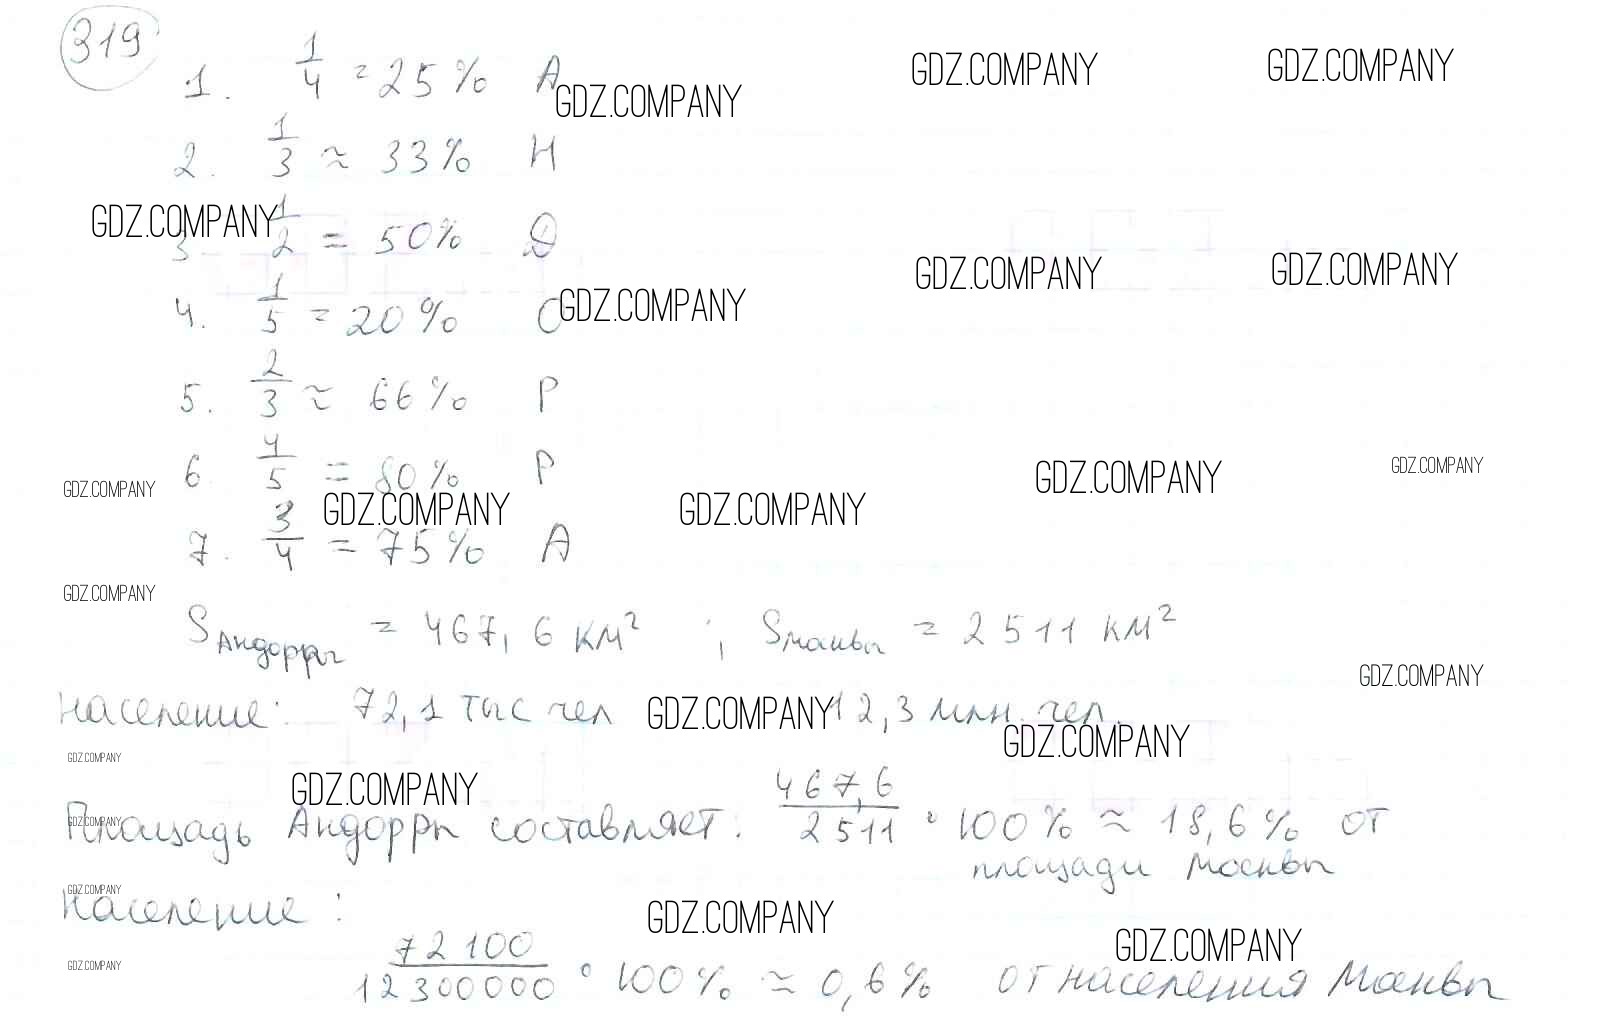 319
1. 1/4 = 25% А GDZ.COMPANY GDZ.COMPANY GDZ.COMPANY
2. 1/3 ≈ 33% Н
GDZ.COMPANY
3 1/2 = 50% Д
GDZ.COMPANY GDZ.COMPANY
4. 1/5 = 20% О GDZ.COMPANY
5. 2/3 ≈ 66% Р
6. 4/5 = 80% Р GDZ.COMPANY GDZ.COMPANY
GDZ.COMPANY GDZ.COMPANY GDZ.COMPANY
7. 3/4 = 75% А
GDZ.COMPANY
S Андорры = 467,6 км² ; S Москвы = 2511 км²
GDZ.COMPANY
население: 72,1 тыс чел GDZ.COMPANY 12,3 млн. чел.
GDZ.COMPANY
GDZ.COMPANY
GDZ.COMPANY
Площадь Андорры составляет: 467,6/2511 · 100% ≈ 18,6% от
GDZ.COMPANY
площади Москвы
GDZ.COMPANY
население:
GDZ.COMPANY GDZ.COMPANY
GDZ.COMPANY
72100/12300000 · 100% ≈ 0,6% от населения Москвы